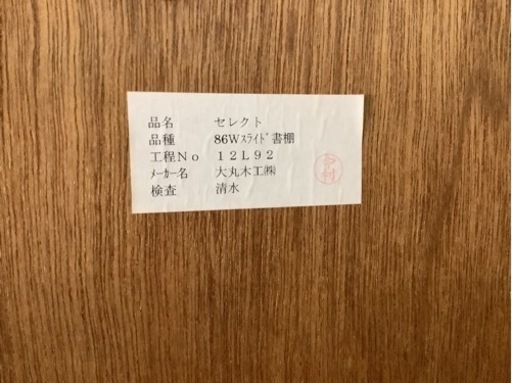 品名　　セレクト
品種　　86Wｽﾗｲﾄﾞ書棚
工程No　12L92
ﾒｰｶｰ名　大丸木工㈱
検査　　清水